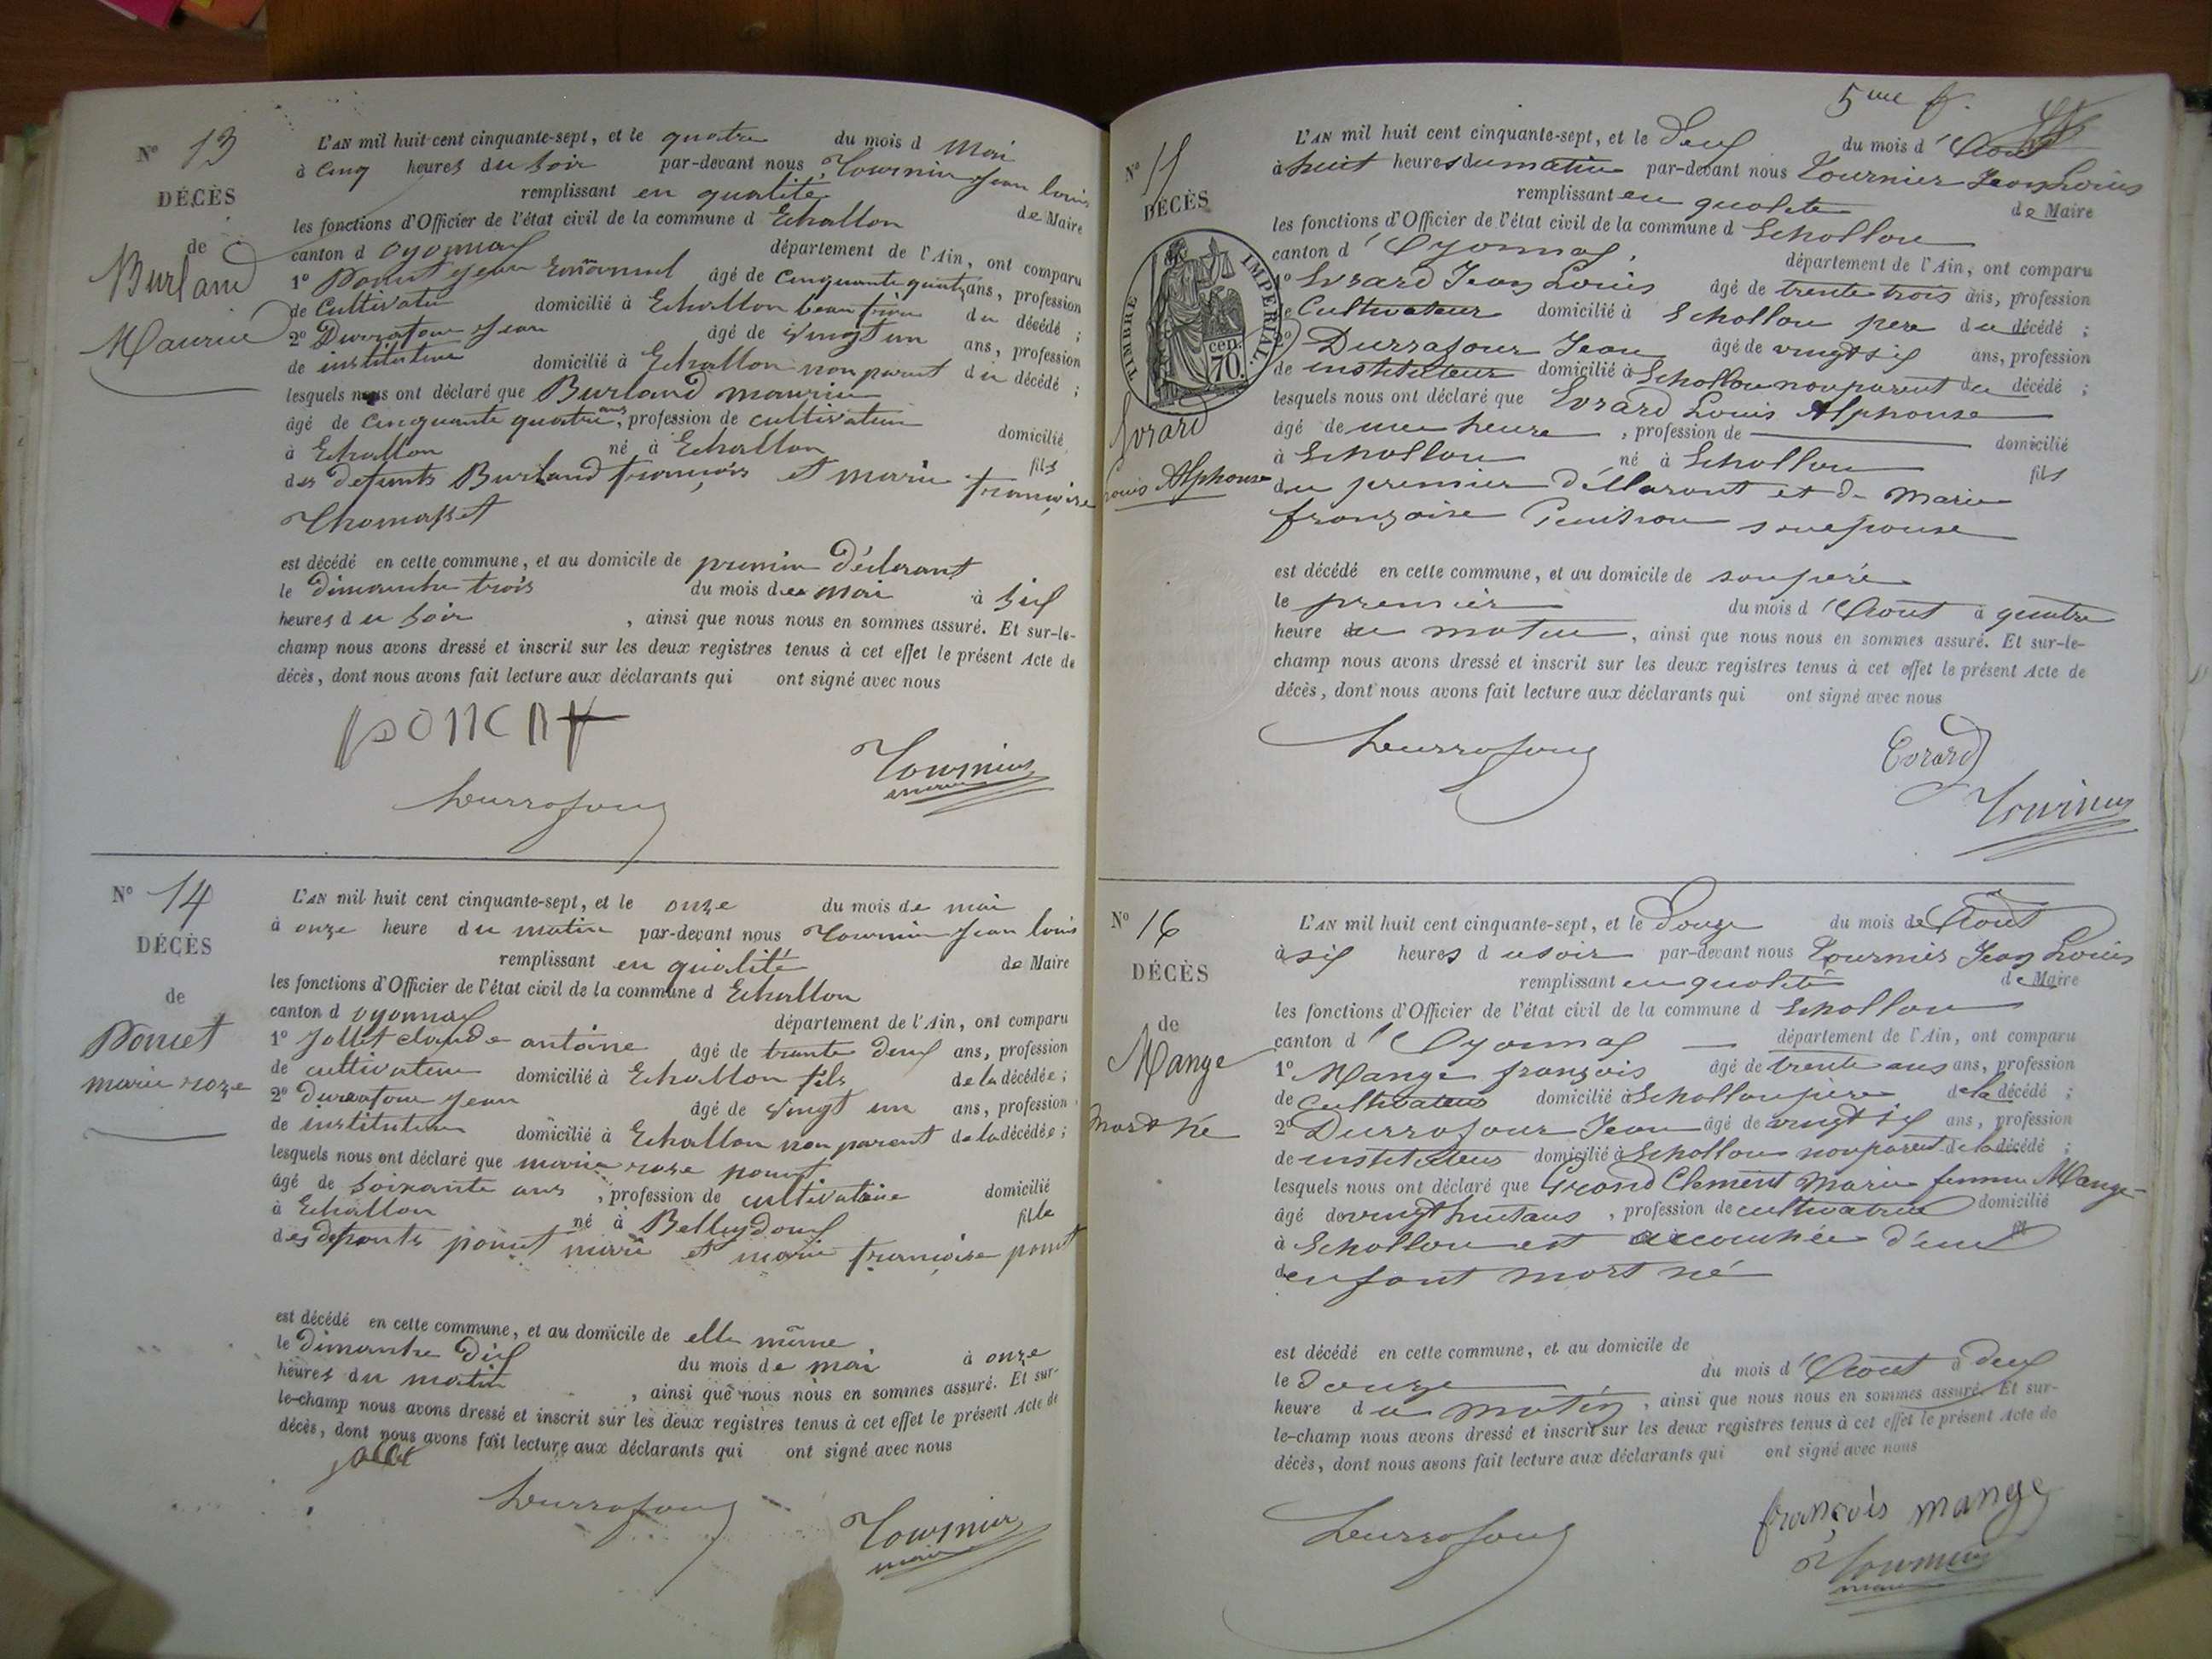 Nº 13
DÉCÈS
de
Burland
Maurice
L'AN mil huit cent cinquante-sept, et le quatre du mois d Mai
à Cinq heures du Soir par-devant nous Tournier Jean louis
remplissant en qualité de Maire
les fonctions d'Officier de l'état civil de la commune d Echallon
canton d Oyonnax département de l'Ain, ont comparu
1º Poncet Jean Emmanuel âgé de Cinquante quatre ans, profession
de Cultivateur domicilié à Echallon beau frère du décédé ;
2º Durrafour Jean âgé de Vingt un ans, profession
de instituteur domicilié à Echallon non parent du décédé ;
lesquels nous ont déclaré que Burland maurice
âgé de Cinquante quatre ans, profession de cultivateur domicilié
à Echallon né à Echallon fils
des defunts Burland françois et marie françoise
Thomasset
est décédé en cette commune, et au domicile de premier Déclarant
le Dimanche trois du mois de mai à Six
heures du Soir , ainsi que nous nous en sommes assuré. Et sur-le-
champ nous avons dressé et inscrit sur les deux registres tenus à cet effet le présent Acte de
décès, dont nous avons fait lecture aux déclarants qui ont signé avec nous
poncet
Tournier
maire
Durrafour
Nº 14
DÉCÈS
de
Poncet
marie roze
L'AN mil huit cent cinquante-sept, et le onze du mois de mai
à onze heure du matin par-devant nous Tournier Jean louis
remplissant en qualité de Maire
les fonctions d'Officier de l'état civil de la commune d Echallon
canton d Oyonnax département de l'Ain, ont comparu
1º Jollet claude antoine âgé de trente Deux ans, profession
de cultivateur domicilié à Echallon fils de la décédée ;
2º Durrafour Jean âgé de Vingt un ans, profession
de instituteur domicilié à Echallon non parent de la décédée ;
lesquels nous ont déclaré que marie roze poncet
âgé de Soixante ans , profession de cultivatrice domicilié
à Echallon né à Belleydoux fille
des defunts poncet marie et marie françoise poncet
est décédé en cette commune, et au domicile de elle même
le Dimanche Dix du mois de mai à onze
heures du matin , ainsi que nous nous en sommes assuré. Et sur-
le-champ nous avons dressé et inscrit sur les deux registres tenus à cet effet le présent Acte de
décès, dont nous avons fait lecture aux déclarants qui ont signé avec nous
Durrafour
Tournier
maire
5me f.
Nº 15
DÉCÈS
TIMBRE IMPERIAL.
cen. 70.
Evrard
Louis Alphonse
L'AN mil huit cent cinquante-sept, et le Deux du mois d'Aout
à huit heures du matin par-devant nous Tournier Jean Louis
remplissant en qualité de Maire
les fonctions d'Officier de l'état civil de la commune d Echallon
canton d'Oyonnax, département de l'Ain, ont comparu
1º Evrard Jean Louis âgé de trente trois ans, profession
de Cultivateur domicilié à Echallon pere du décédé ;
2º Durrafour Jean âgé de vingt six ans, profession
de instituteur domicilié à Echallon non parent du décédé ;
lesquels nous ont déclaré que Evrard Louis Alphonse
âgé de une heure , profession de domicilié
à Echallon né à Echallon fils
du premier Déclarant et de Marie
françoise son epouse
est décédé en cette commune, et au domicile de son père
le premier du mois d'Aout à quatre
heure du matin , ainsi que nous nous en sommes assuré. Et sur-le-
champ nous avons dressé et inscrit sur les deux registres tenus à cet effet le présent Acte de
décès, dont nous avons fait lecture aux déclarants qui ont signé avec nous
Durrafour
Evrard
Tournier
Nº 16
DÉCÈS
de
Mange
Mort né
L'AN mil huit cent cinquante-sept, et le Douze du mois de Aout
à six heures du soir par-devant nous Tournier Jean Louis
remplissant en qualité de Maire
les fonctions d'Officier de l'état civil de la commune d Echallon
canton d'Oyonnax département de l'Ain, ont comparu
1º Mange françois âgé de trente ans ans, profession
de Cultivateur domicilié à Echallon père de la décédé ;
2º Durrafour Jean âgé de vingt six ans, profession
de instituteur domicilié à Echallon non parent de la décédé ;
lesquels nous ont déclaré que Grand Clement Marie femme Mange
âgé de vingt huit ans , profession de cultivatrice domicilié
à Echallon est accouchée d'un
enfant mort né
est décédé en cette commune, et au domicile de
le douze du mois d'Aout à deux
heure du matin , ainsi que nous nous en sommes assuré. Et sur-
le-champ nous avons dressé et inscrit sur les deux registres tenus à cet effet le présent Acte de
décès, dont nous avons fait lecture aux déclarants qui ont signé avec nous
Durrafour
françois mange
Tournier
maire